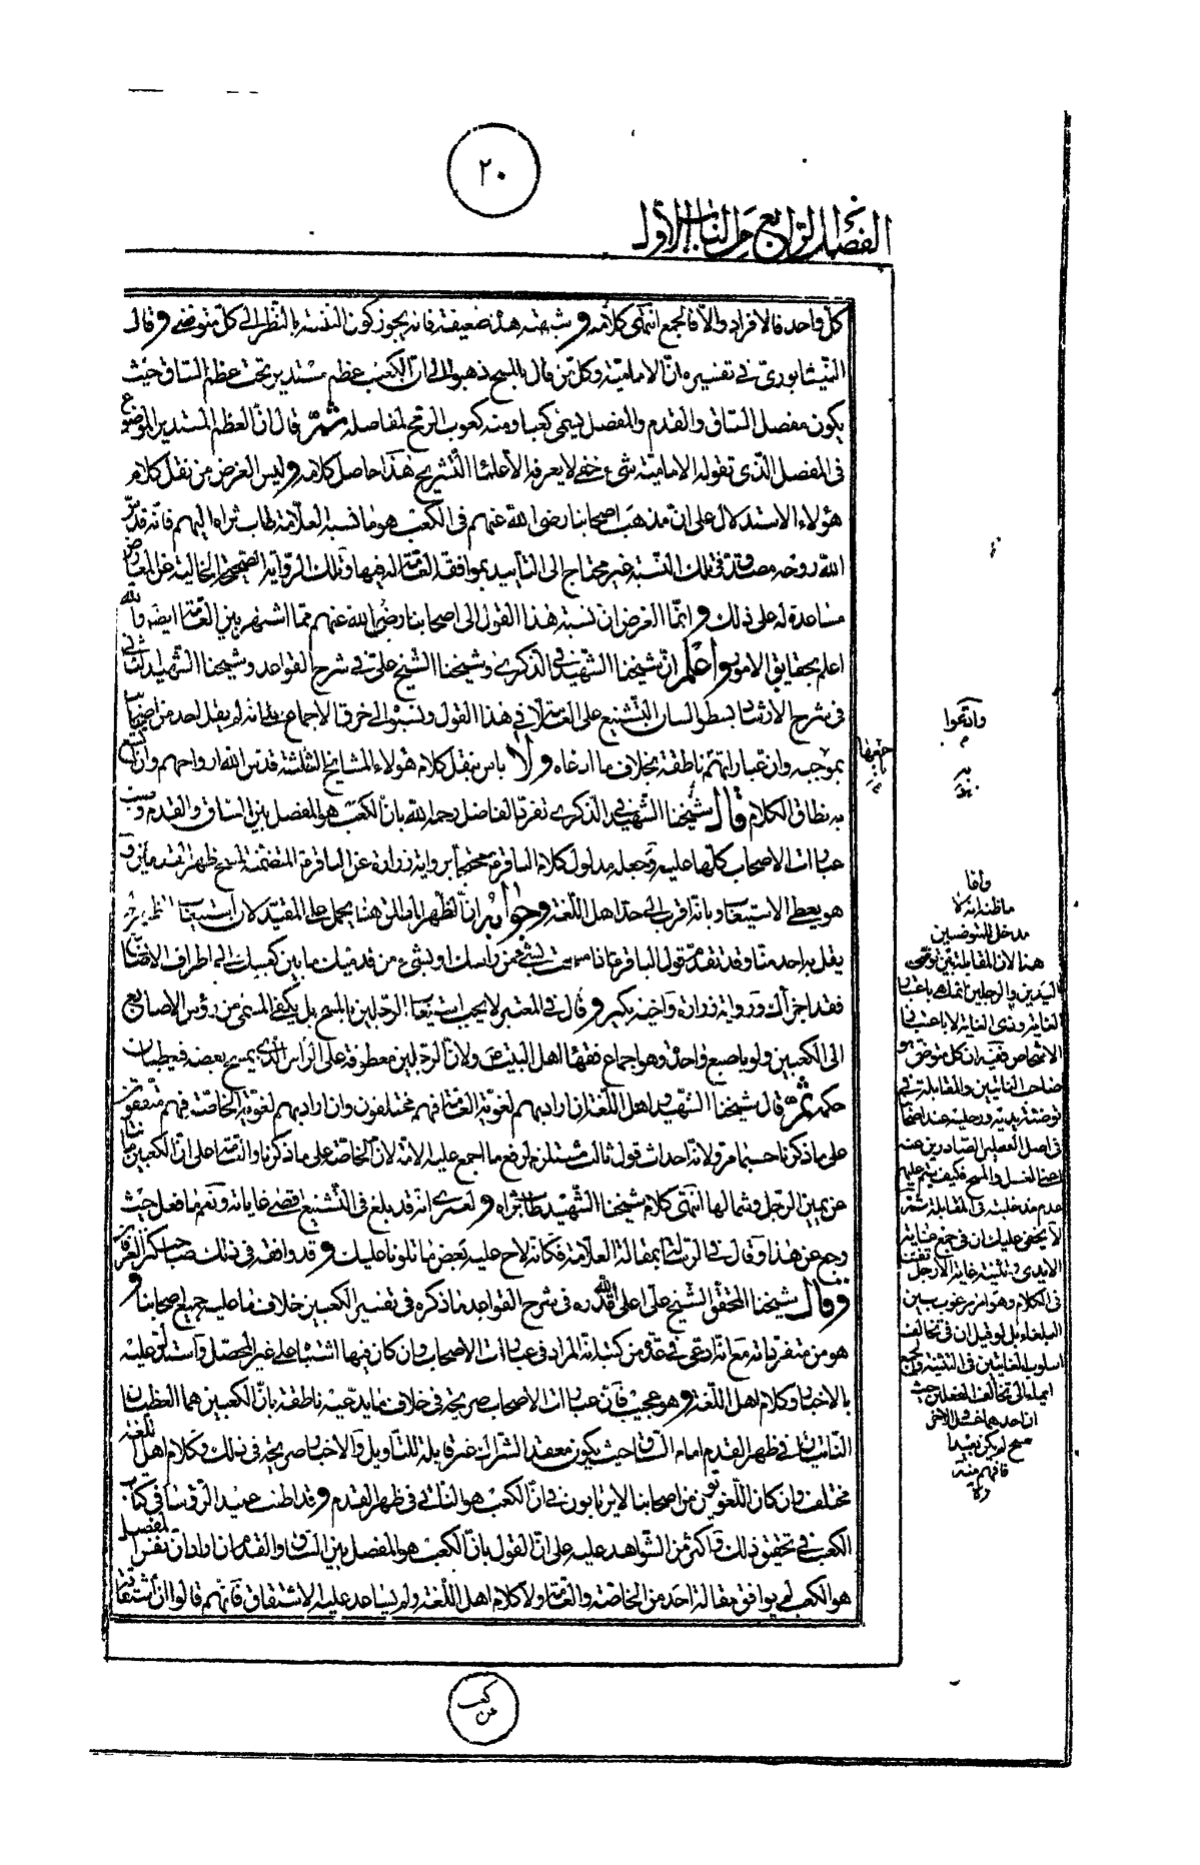 ٢٠
الفصل الرابع من الباب الأول
كل واحد فالافراد والا فالجمع انتهى كلامه و شبهته هذه ضعيفة فانه يجوز كون التثنية بالنظر الى كل متوضئ و قال
النيشابوري في تفسيره ان الامامية وكل من قال بالمسح ذهبوا الى ان الكعب عظم مستدير تحت عظم الساق حيث
يكون مفصل الساق والقدم والمفصل يسمى كعبا ومنه كعوب الرمح لمفاصله ثم قال ان العظم المستدير الموضوع
في المفصل الذي تقوله الامامية شيء خفي لا يعرفه الا علماء التشريح هذا حاصل كلامه و ليس الغرض من نقل كلام
هؤلاء الاستدلال على ان مذهب اصحابنا رضى الله عنهم في الكعب هو ما نسبه العلامة طاب ثراه اليهم فانه قدس
الله روحه مصدق في تلك النسبة غير محتاج الى التأييد بموافقة العامة له فيها وتلك الرواية الصحيحة الخالية عن المعارض
مساعدة له على ذلك و انما الغرض ان نسبة هذا القول الى اصحابنا رضى الله عنهم مما اشتهر بين العامة ايضا والله
اعلم بحقايق الامور واعلم ان شيخنا الشهيد في الذكرى وشيخنا الشيخ علي في شرح القواعد وشيخنا الشهيد الثاني
في شرح الارشاد بسطوا لسان التشنيع على العلامة في هذا القول ونسبوا الى خرق الاجماع وادعوا انه لم يقل احد من اصحابنا
بموجبه وان عباراتهم ناطقة بخلاف ما ادعاه ولا باس بنقل كلام هؤلاء المشايخ الثلثة قدس الله ارواحهم وان اتسع
به نطاق الكلام قال شيخنا الشهيد في الذكرى تفرد الفاضل رحمه الله بان الكعب هو المفصل بين الساق والقدم وصب
عبارات الاصحاب كلها عليه وجعله مدلول كلام الباقر محتجا برواية زرارة عن الباقر المتضمنة لمسح ظهر القدمين و
هو يعطي الاستيعاب وبانه اقرب الى حد اهل اللغة وجوابه ان الظهر المطلق هنا يحمل على المقيد لان استيعاب الظهر لم
يقل به احد منا وقد تقدم قول الباقر اذا مسحت بشيء من رأسك او بشيء من قدميك ما بين كعبيك الى اطراف الاصابع
فقد اجزأك ورواية زرارة واخيه بكير و قال في المعتبر لا يجب استيعاب الرجلين بالمسح بل يكفي المسمى من رؤس الاصابع
الى الكعبين ولو باصبع واحدة وهو اجماع فقهاء اهل البيت ولان الرجلين معطوفة على الرأس الذي يمسح بعضه فيعطيان
حكمه ثم قال شيخنا الشهيد و اهل اللغة ان اراد بهم لغوية العامة فهم مختلفون وان اراد بهم لغوية الخاصة فهم متفقون
على ما ذكرنا حسبما مر ولانه احداث قول ثالث مستلزم لرفع ما اجمع عليه الامة لان الخاصة على ما ذكرنا والعامة على ان الكعبين ما نتأ
عن يمين الرجل وشمالها انتهى كلام شيخنا الشهيد طاب ثراه و لعمري انه قد بلغ في التشنيع اقصى غاياته ونعم ما فعل حيث
رجع عن هذا وقال في الرسالة بمقالة العلامة فكانه لاح عليه بعض ما تلونا عليك و قد وافقه في ذلك صاحب كنز العرفان
و قال شيخنا المحقق الشيخ علي اعلى الله قدره في شرح القواعد ما ذكره في تفسير الكعبين خلاف ما عليه جميع اصحابنا و
هو من متفرداته مع انه ادعى في عدة من كتبه انه المراد في عبارات الاصحاب وان كان فيها اشتباه على غير المحصل واستدل عليه
بالاخبار وكلام اهل اللغة وهو عجيب فان عبارات الاصحاب صريحة في خلاف ما يدعيه ناطقة بان الكعبين هما العظمان
الناتيان في ظهر القدم امام الساق حيث يكون معقد الشراك غير قابلة للتأويل والاخبار صريحة في ذلك وكلام اهل اللغة
مختلف وان كان اللغويون من اصحابنا لا يرتابون في ان الكعب هو الناتي في ظهر القدم و قد اطنب عميد الرؤساء في كتاب
الكعب في تحقيق ذلك واكثر من الشواهد عليه على ان القول بان الكعب هو المفصل بين الساق والقدم ان اراد ان نفس المفصل
هو الكعب لم يوافق مقالة احد من الخاصة والعامة ولا كلام اهل اللغة ولم يساعد عليه الاشتقاق فانهم قالوا ان اشتقاقه
من كعب
وادعوا
واما
ما ظن انه لا
مدخل للمتوضين
هنا لان المقابلة بين توضي
اليدين والرجلين انما هي باعتبار
الغاية وذي الغاية لا باعتبار
الاشخاص ففيه ان كل متوضي هو
صاحب الغايتين والمقابلة في
توضئة يديه ورجليه عند اصحابنا
في اصل الفعلين الصادرين عنه
اعني الغسل والمسح فكيف يتم عليهم
عدم مدخليته في المقابلة ثم
لا يخفى عليك ان في جمع غاية
الايدي وتثنية غاية الارجل تفننا
في الكلام وهو امر مرغوب بين
البلغاء بل لو قيل ان في تخالف
اسلوب الغايتين في التثنية والجمع
ايماء الى تخالف الفعلين حيث
ان احدهما غسل والاخر
مسح لم يكن بعيدا
فافهم منه
ره